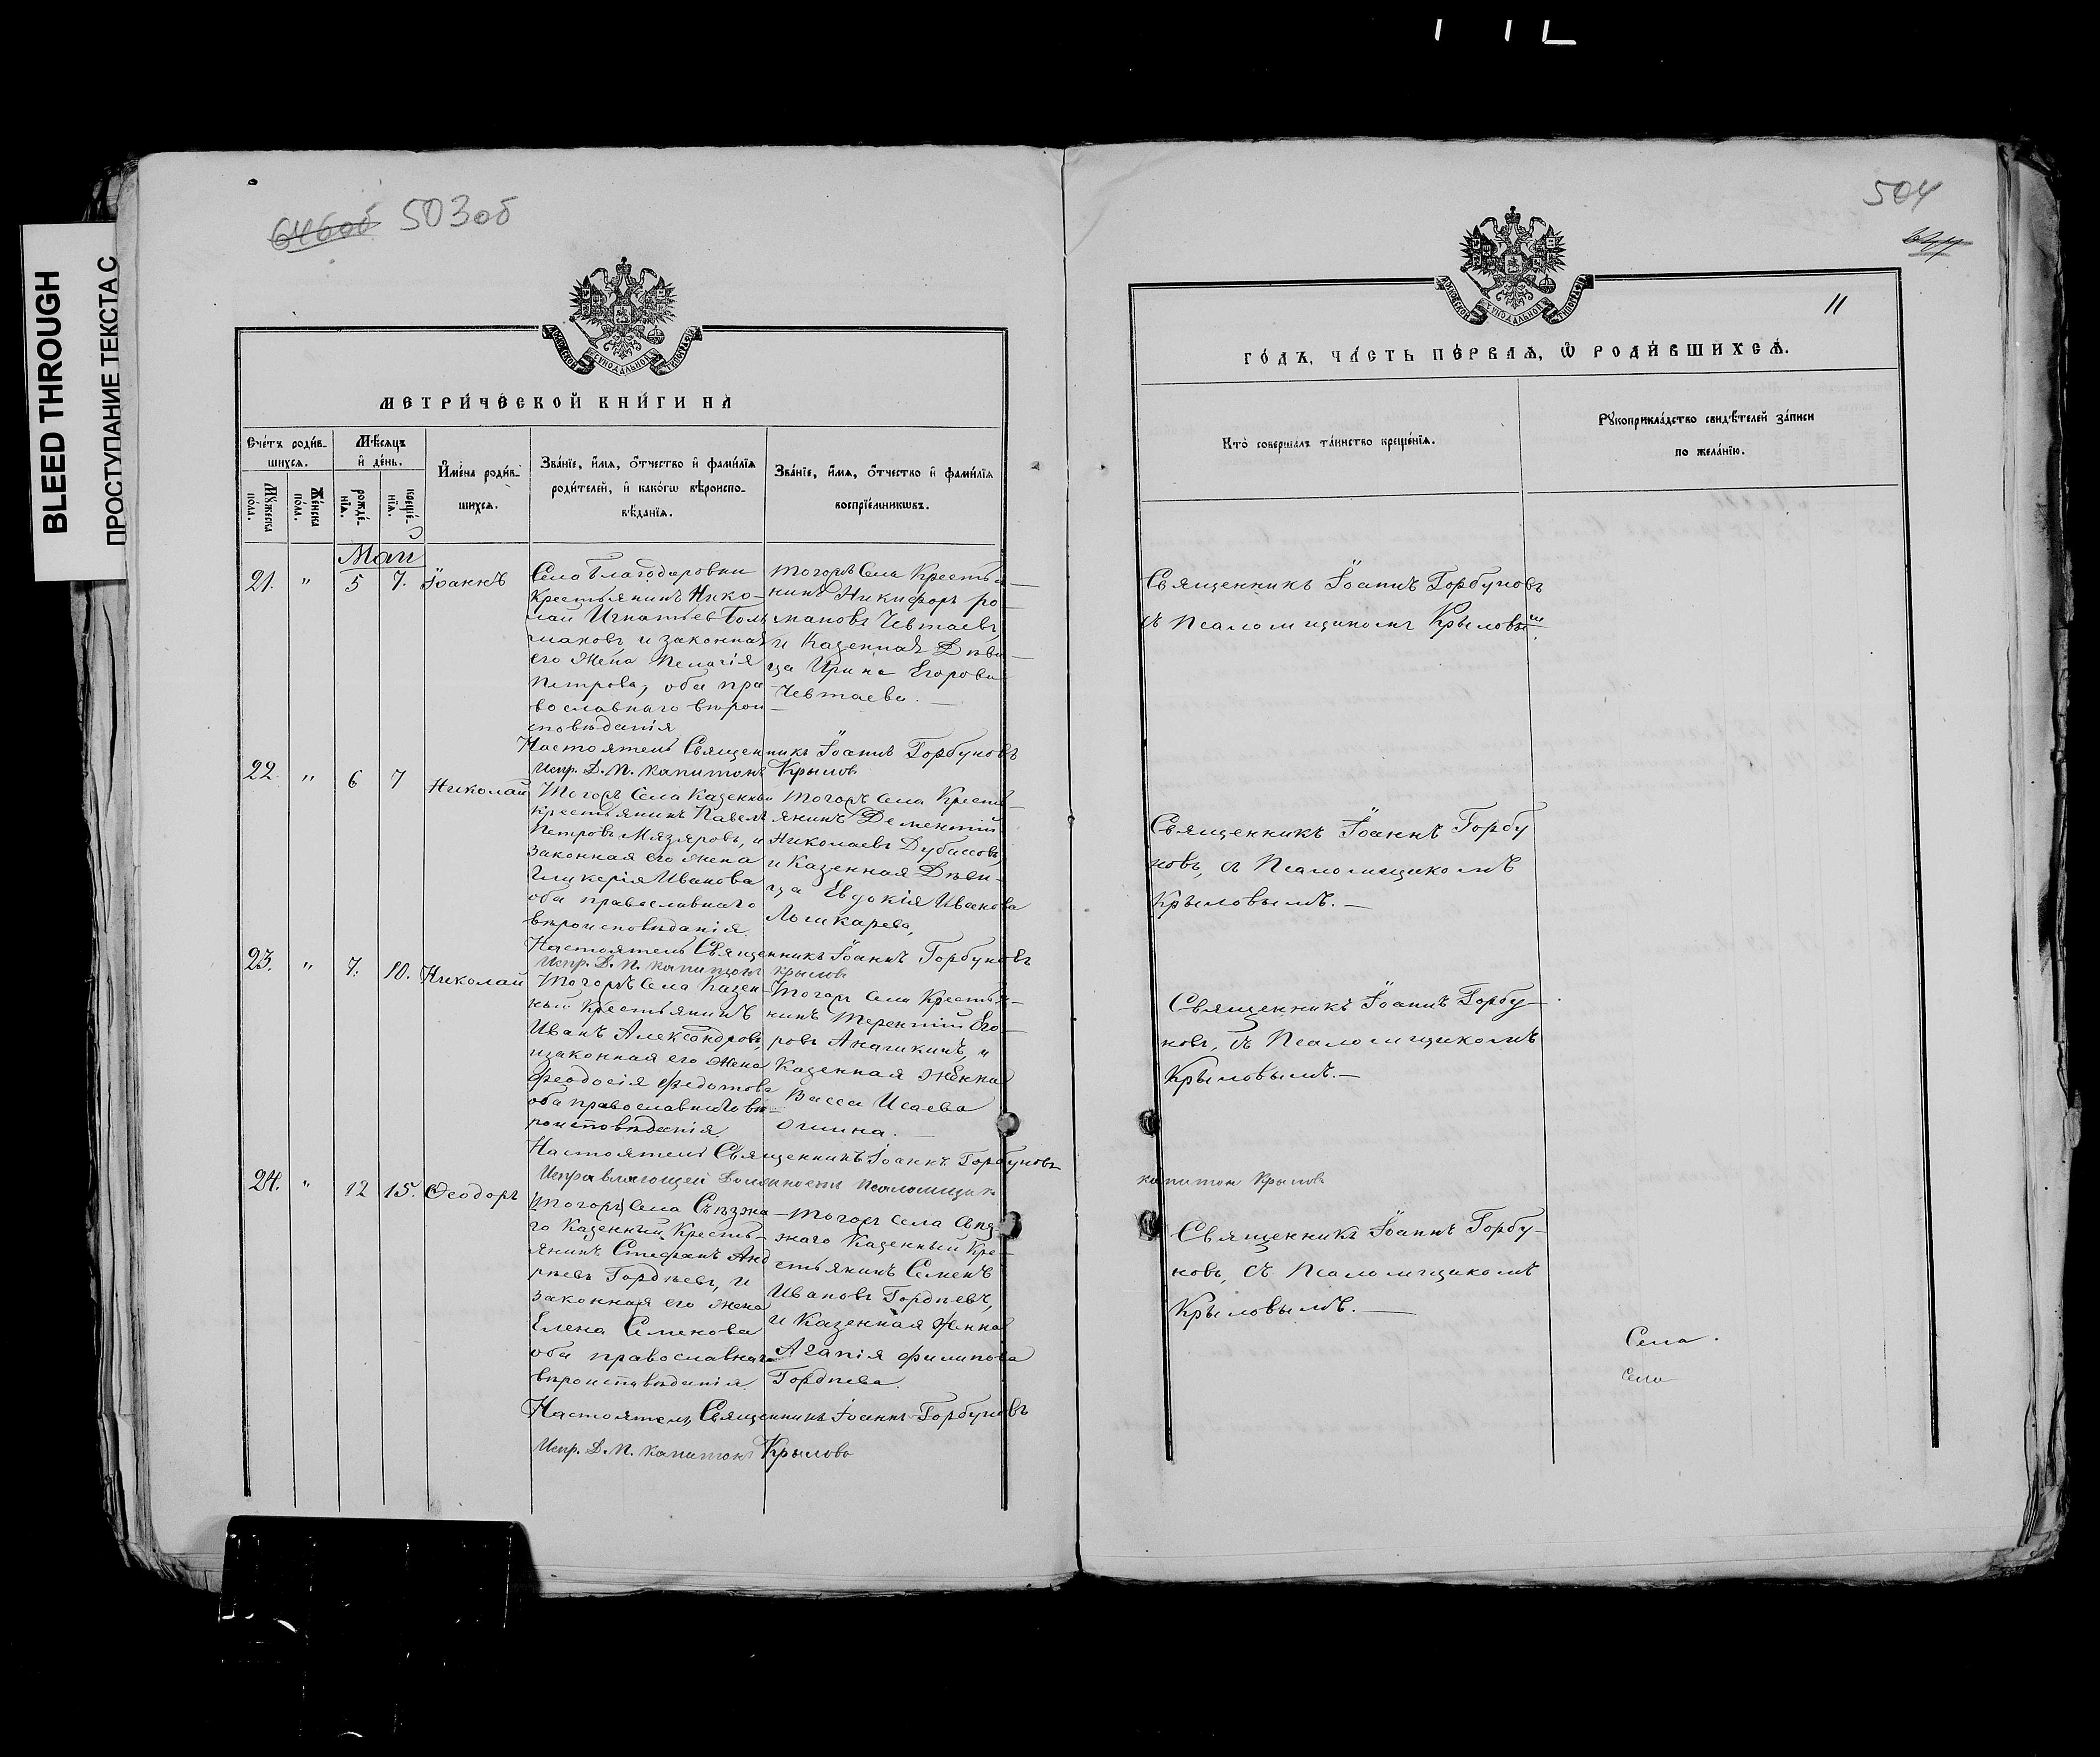 BLEED THROUGH
ПРОСТУПАНИЕ ТЕКСТА С
646об 503об
МЕТРИЧЕСКОЙ КНИГИ НА
Счетъ родив-
шихся.
Мѣсяцъ
и день.
Имена родив-
шихся.
Званіе, имя, отчество и фамилія
родителей, и какогѡ вѣроиспо-
вѣданія.
Званіе, имя, отчество и фамилія
воспріемникѡвъ.
Мужеска
пола.
Женска
пола.
рожде-
нія.
креще-
нія.
Май
21. " 5 7. Іоаннъ
Село Благодаровки
Крестьянинъ Нико-
лай Игнатьев
и законная
его жена Пелагія
Петрова, оба пра-
вославнаго вѣрои
сповѣданія
Тогожъ Села Крестья-
нинъ Никифоръ Ро-
мановъ Чевтаевъ
и Казенная Дѣви-
ца Ирина Егорова
Чевтаева.
Настоятель Священникъ Іоаннъ Горбуновъ
Испр. Д. П. Капитонъ Крылов
22 " 6 7 Николай
Тогожъ Села Казенный
крестьянинъ Павелъ
Петровъ Мязяровъ, и
законная его жена
Гликерія Иванова
оба православнаго
вѣроисповѣданія.
Тогожъ Села Кресть-
янинъ Дементій
Николаевъ Дубиновъ
и Казенная Дѣви-
ца Евдокія Иванова
Лошкарева,
Настоятель Священникъ Іоаннъ Горбуновъ
Испр. Д. П. Капитонъ Крылов
23. " 7. 10. Николай
Тогожъ Села Казен-
ный Крестьянинъ
Иванъ Александровъ,
изаконная его жена
Феодосія Федотова
оба православнаго вѣ-
роисповѣданія.
Тогожъ Села Крестья-
нинъ Терентій Его-
ровъ Аношкинъ, и
Казенная женка
Васса Исаева
Настоятель Священникъ Іоаннъ Горбуновъ
Исправляющей Должность псаломщик
24. " 12 15. Ѳеодоръ
Тогожъ Села Съѣзжа-
го Казенный Кресть-
янинъ Стефанъ Анд
рѣевъ Гордѣевъ, и
законная его жена
Елена Семенова
оба православнаго
вѣроисповѣданія.
Тогожъ Села Съѣз-
жаго Казенный Кре-
стьянинъ Семенъ
Ивановъ Гордѣевъ,
и Казенная женка
Агапія Филипова
Гордѣева.
Настоятель Священникъ Іоаннъ Горбуновъ
Испр. Д. П. Капитонъ Крылово
504
11
ГОДЪ, ЧАСТЬ ПЕРВАЯ, Ѡ РОДИВШИХСЯ.
Кто совершалъ таинство крещенія.
Рукоприкладство свидѣтелей записи
по желанію.
Священникъ Іоаннъ Горбуновъ
съ Псаломщикомъ Крыловым
Священникъ Іоаннъ Горбу
новъ, съ Псаломщикомъ
Крыловымъ.—
Священникъ Іоаннъ Горбу-
новъ, съ Псаломщикомъ
Крыловымъ.—
капитон Крылов
Священникъ Іоаннъ Горбу-
новъ, съ Псаломщикомъ
Крыловымъ.—
Села.
Села